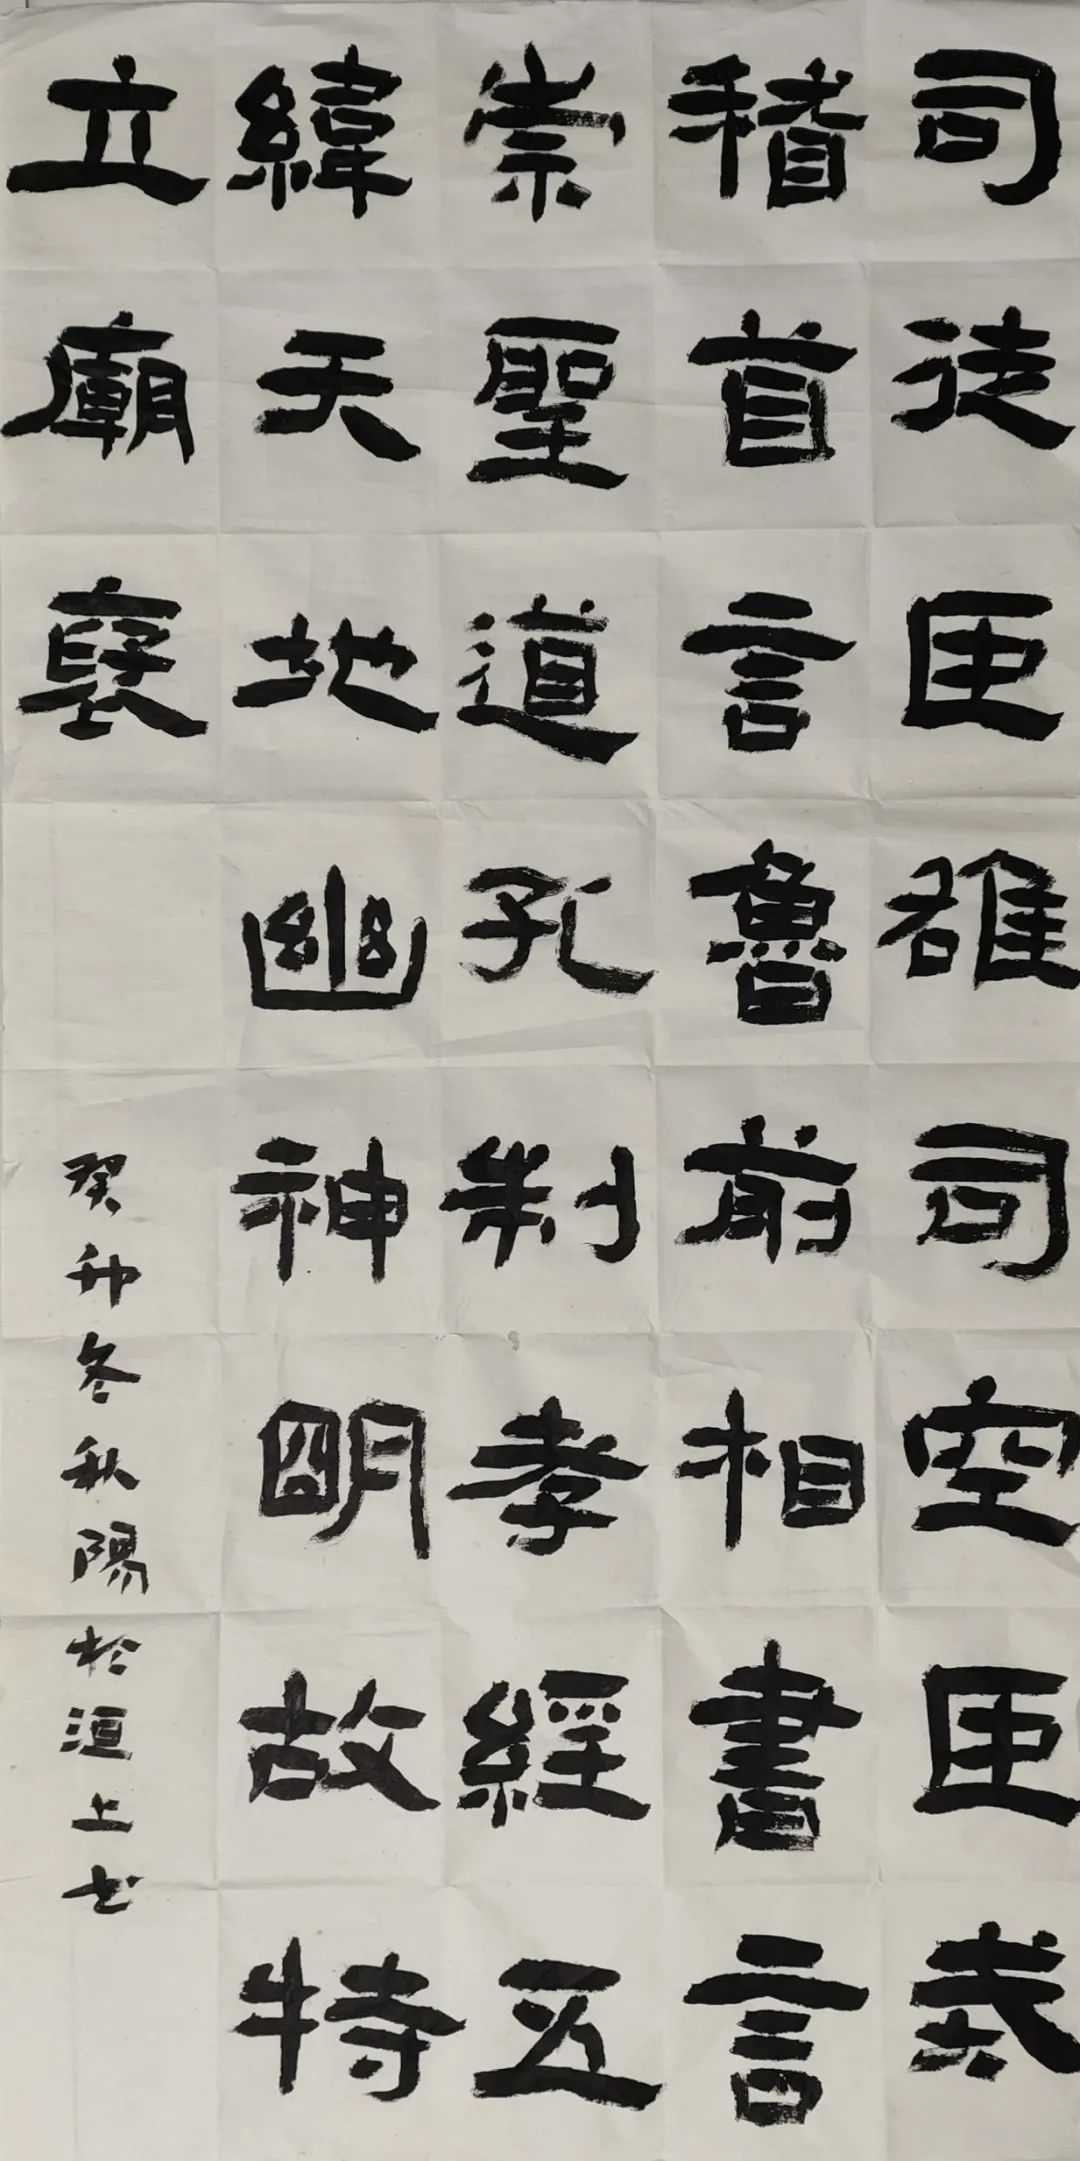 司徒臣雄司空臣戒
稽首言魯前相書言
崇聖道孔制孝經五
緯天地幽神明故特
立廟褒
癸卯冬秋陽於洹上书